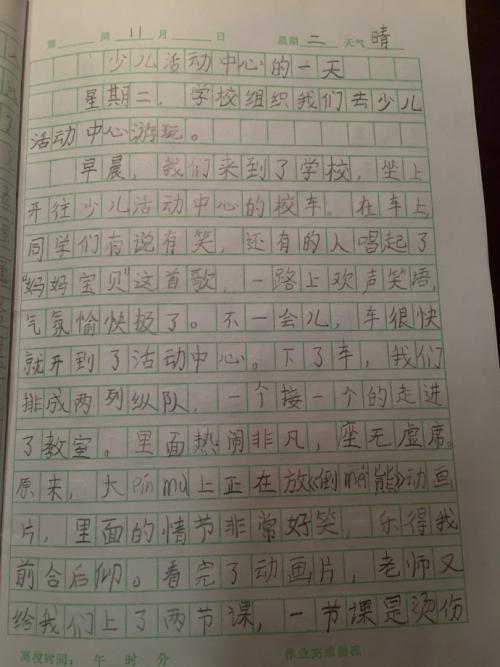 第 周 11 月 日 星期 二 天气 晴
少儿活动中心的一天
星期二，学校组织我们去少儿
活动中心游玩。
早晨，我们来到了学校，坐上
开往少儿活动中心的校车。在车上，
同学们有说有笑，还有的人唱起了
“妈妈宝贝”这首歌，一路上欢声笑语，
气氛愉快极了。不一会儿，车很快
就开到了活动中心。下了车，我们
排成两列纵队，一个接一个的走进
了教室。里面热闹非凡，座无虚席。
原来，大pín mù上正在放《倒méi熊》动画
片，里面的情节非常好笑，乐得我
前合后仰。看完了动画片，老师又
给我们上了两节课，一节课是烫伤
离校时间： 午 时 分 作业完成情况